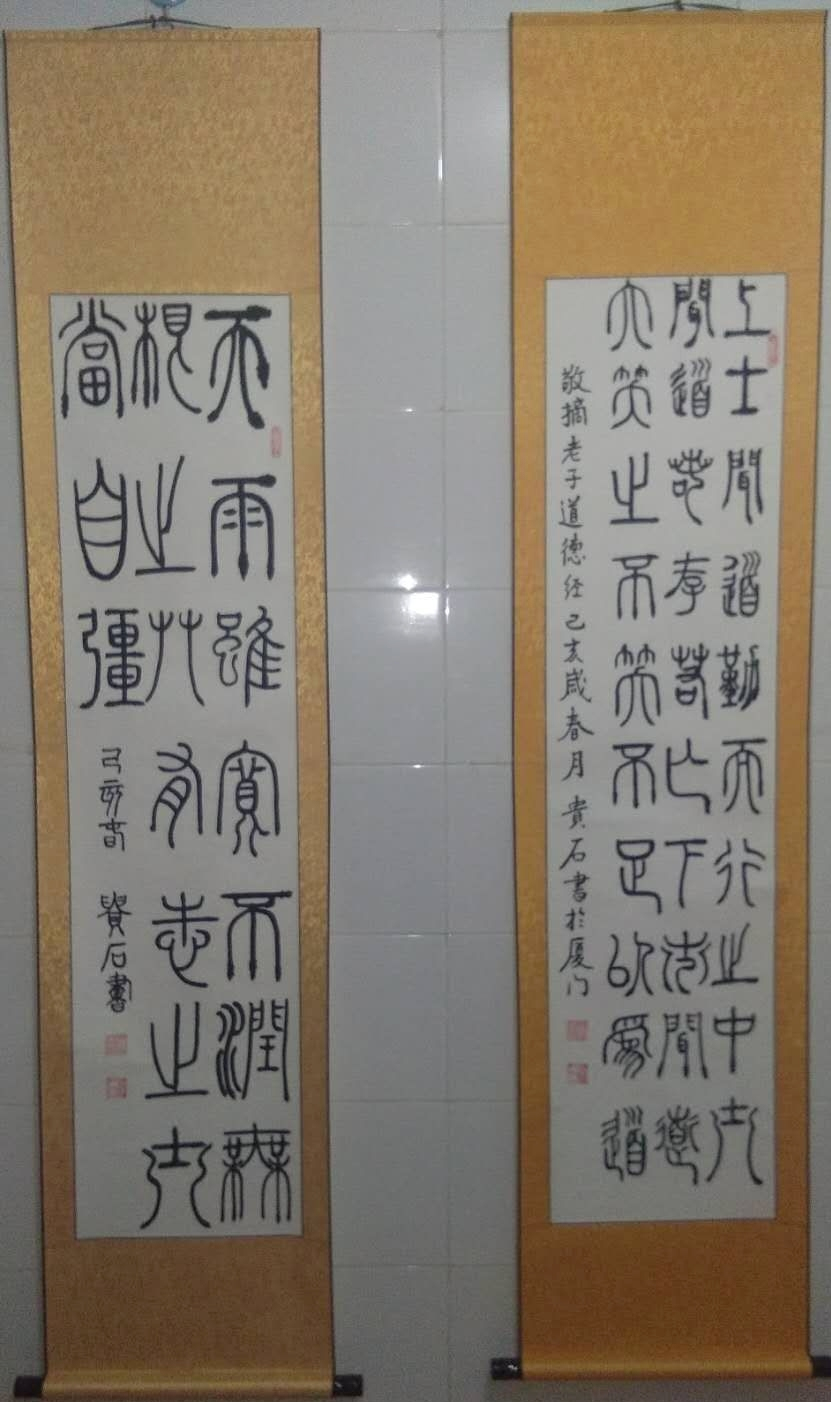 上士聞道勤而行之中士
聞道若存若亡下士聞道
大笑之不笑不足以為道
敬摘老子道德经己亥歲春月 貴石書於厦门
天雨雖寬不潤無
根之艸有志之士
當自彊
己亥春 貴石書